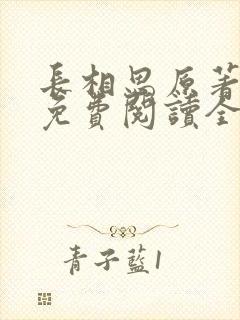 長相思原著
免費閱讀全
青子藍1